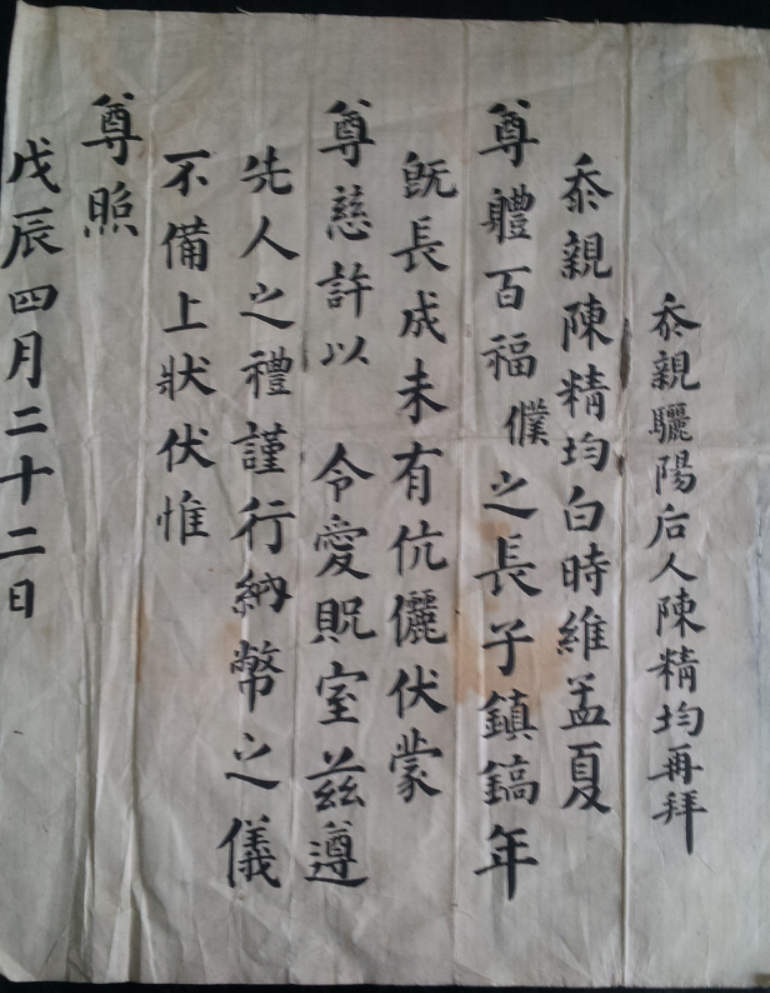 忝親驪陽后人陳精均再拜
忝親陳精均白時維孟夏
尊軆百福 僕之長子鎮鎬年
既長成未有伉儷伏蒙
尊慈許以 令愛貺室茲遵
先人之禮謹行納幣之儀
不備上狀伏惟
尊照
戊辰四月二十二日